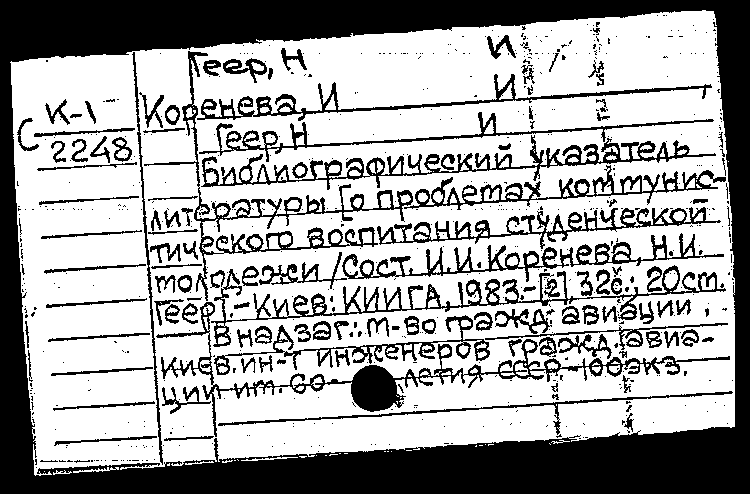 Геер, Н. И
К-1 Коренева, И И
С 2248 Геер, Н И
Библиографический указатель
литературы [о проблемах коммунис-
тического воспитания студенческой
молодежи /Сост. И.И.Коренева, Н.И.
Геер]. - Киев: КИИГА, 1983.-[2], 32с.; 20см.
В надзаг.: М-во гражд. авиации,
Киев. ин-т инженеров гражд. авиа-
ции им. 60-летия СССР. -100экз.